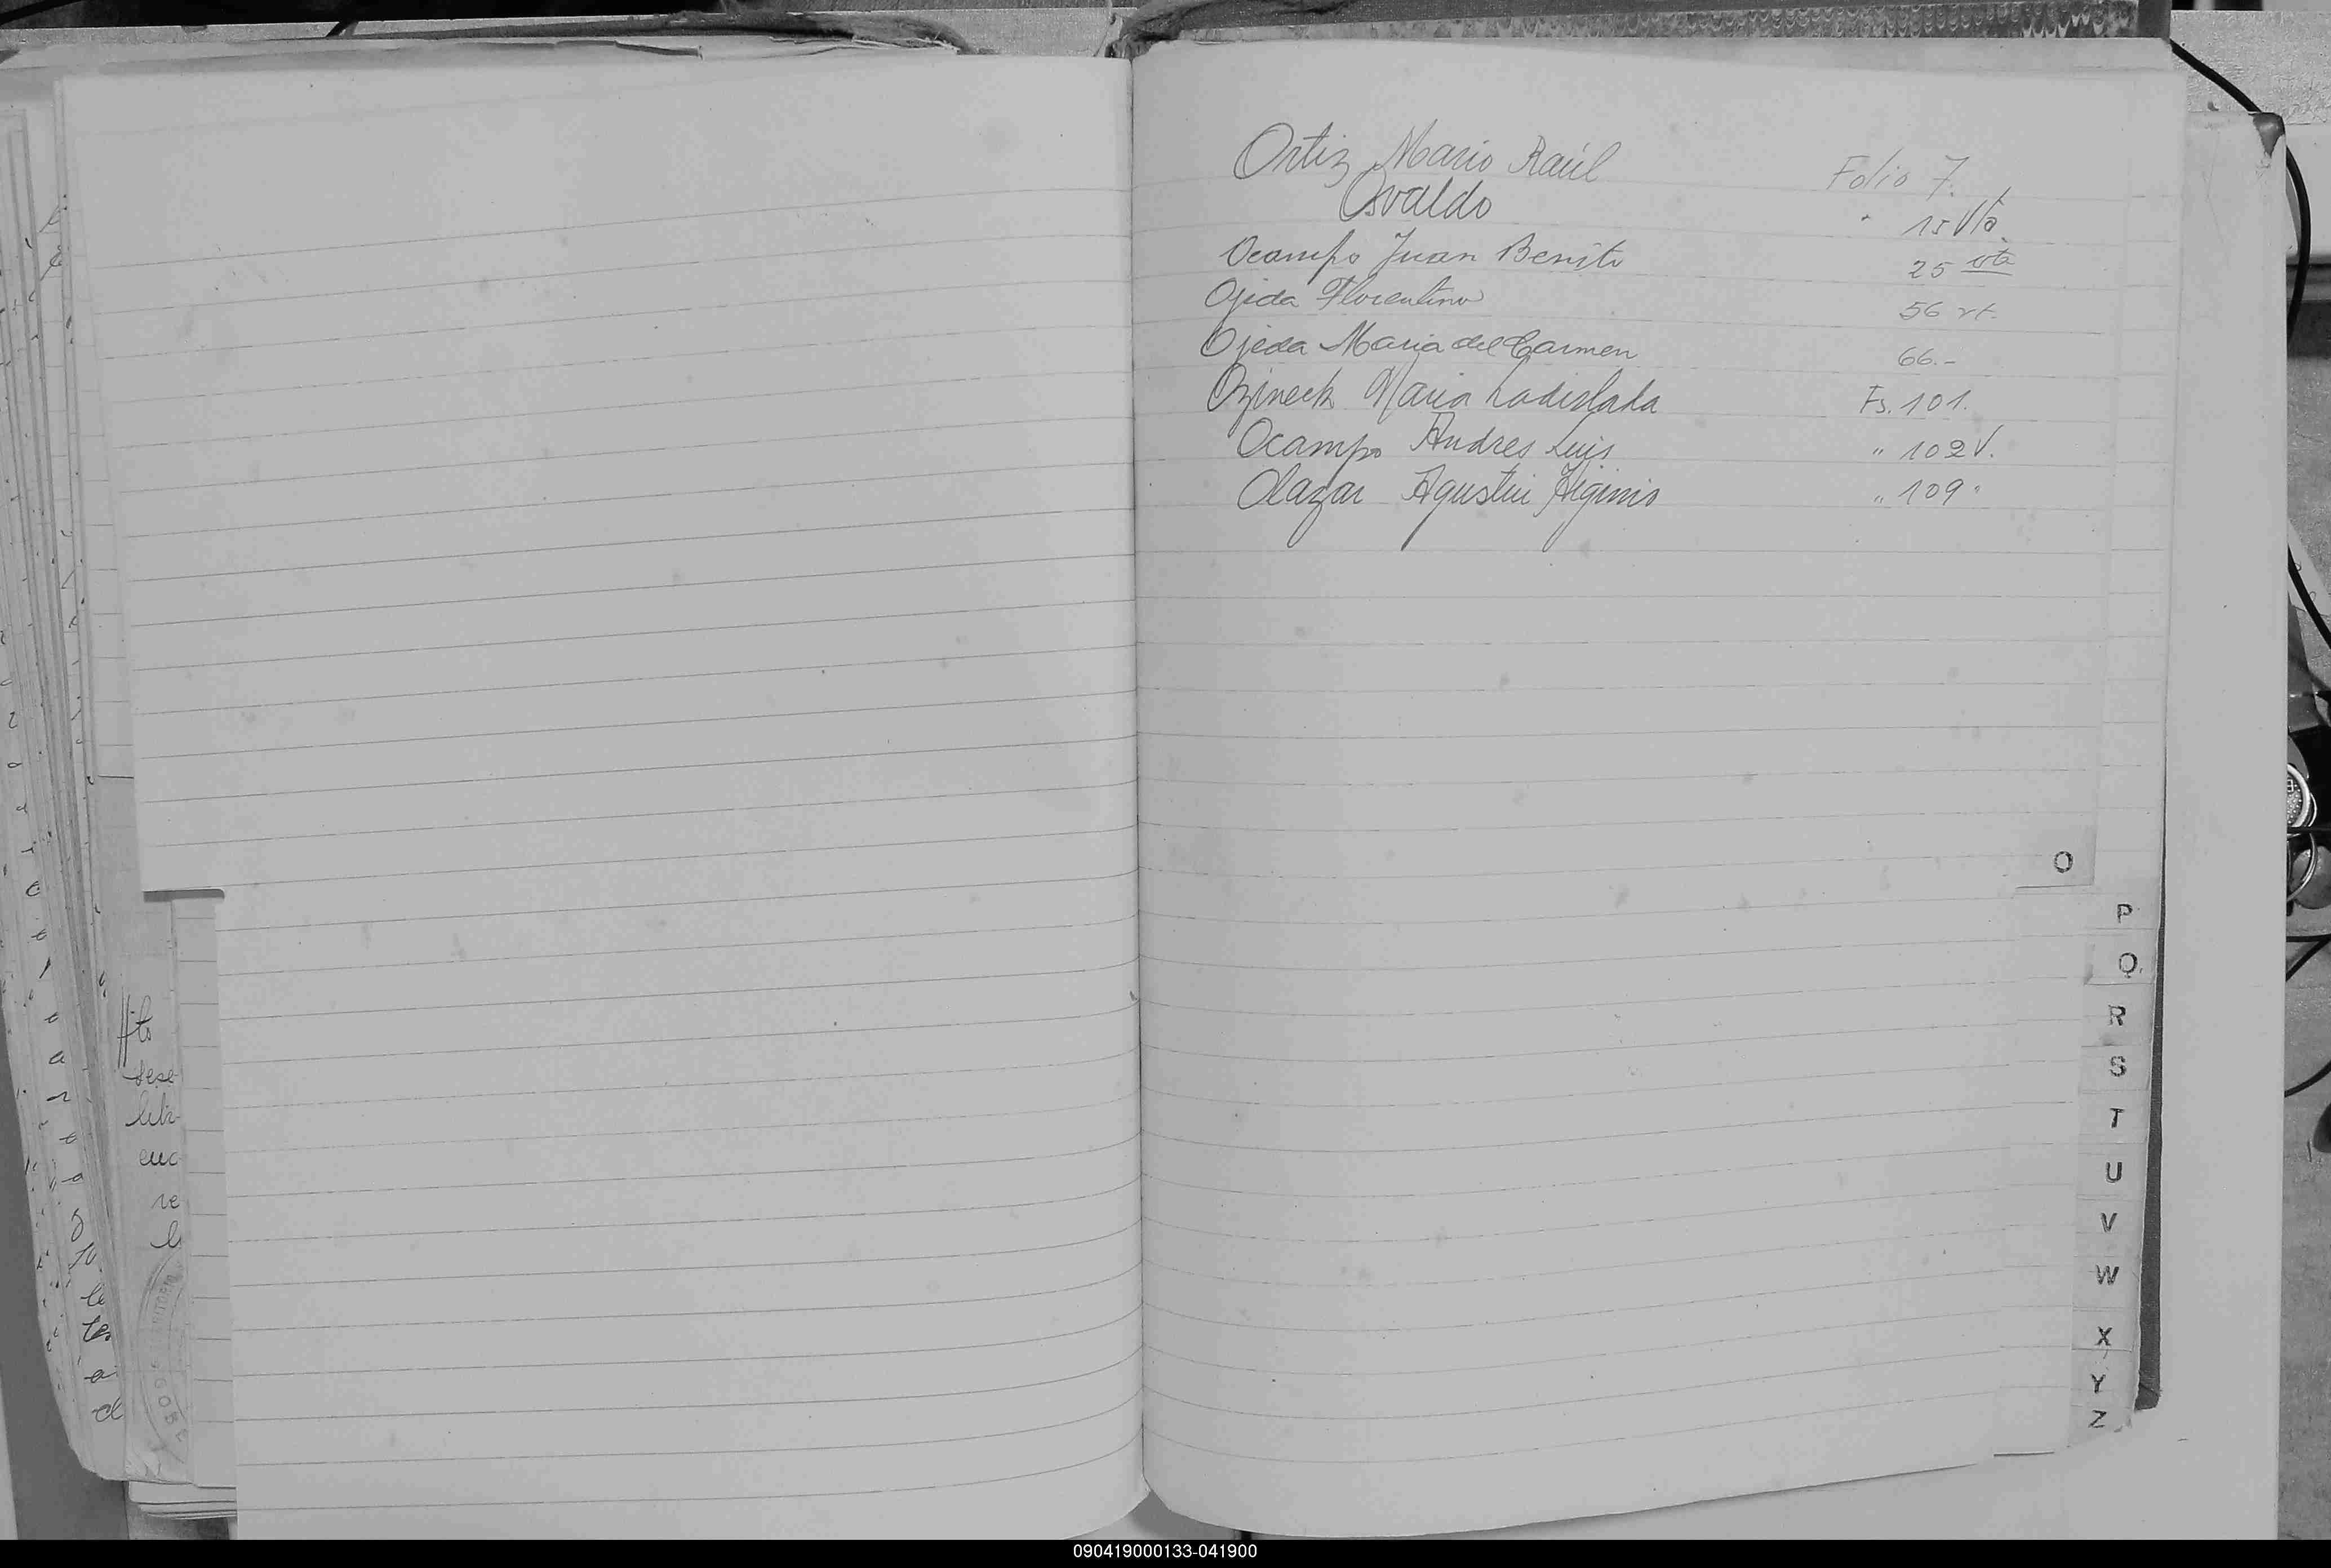 Ortiz Mario Raúl Folio 7.
Osvaldo " 15 Vta.
Ocampo Juan Benito 25 vta
Ojeda Florentino 56 vt.
Ojeda Maria del Carmen 66.-
Ozineck Maria Ladislada Fs. 101.
Ocampo Andres Luis " 102 V.
Olazar Agustin Higinio " 109 "
O
P
Q
R
S
T
U
V
W
X
Y
Z
090419000133-041900